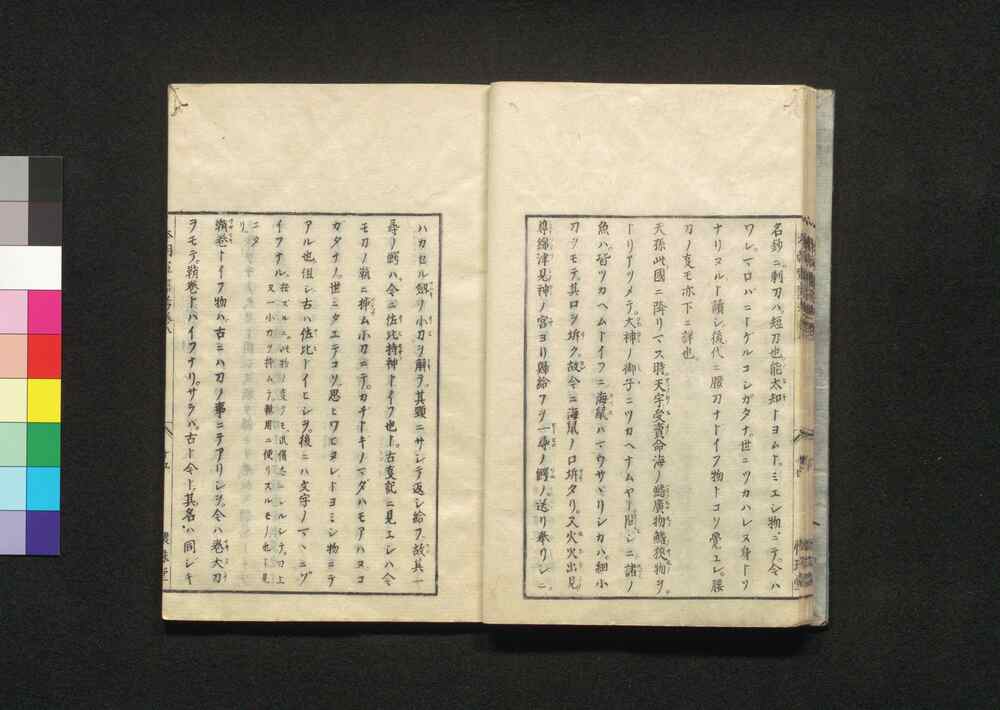 名鈔ニ刺刀ハ短刀也能太知トヨムト。ミエシ物ニテ。今ハ
ワレマロバニトゲルコシガタナ。世ニツカハレス身トソ
ナリヌルト讀シ後代ニ腰刀ナトイフ物トコソ覺エレ。腰
刀ノ夏モ亦下ニ詳也
天孫此國ニ降リマス時天宇受賣命海ノ鰭廣物鰭狹物ヲ。
トリアツメテ。大神ノ御子ニツカヘナムヤト問シニ諸ノ
魚ハ皆ツカヘムトイフニ海鼠ハマウサヾリシカハ。細小
刀ヲモテ。其口ヲ拆ク。故今ニ海鼠ノ口拆タリ。又火火出見
尊綿津見神ノ宮ヨリ歸給フヲ一尋ノ鰐ノ送リ奉リシニ
ハカセル劒ノ小刀ヲ解ヲ。其頸ニサシテ返シ給フ。故其一
尋ノ鰐ハ。今ニ佐比持神トイフ也ト。古夏記ニ見エシハ今
モ刀ノ鞘ニ挿ム小刀ニテ。カチトキノマダハモアハヌコ
ガタナノ。世ニタエテコソ。思ヒワビヌレ。トヨミシ物ニテ
アル也但シ古ハ佐比トイヒシヲ。後ニハ文字ノマヽニゾ
イフナル。
又一小刀ヲ挿ムテ。雜用ニ便リスルモノ也ト見
ニタ
リ
鞘卷トイフ物ハ。古ニハ刀ノ事ニテアリシヲ。今ハ卷大刀
ヲモテ。鞘卷トハイフナリ。サラハ。古ト今ト。其名ハ同シキ